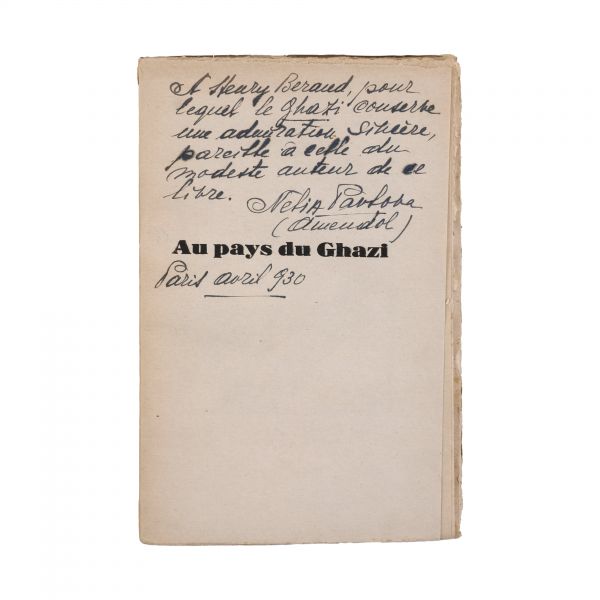 A Henry Beraud, pour
lequel le Ghazi conserve
une admiration sincère,
pareille à celle du
modeste auteur de ce
livre.
Nelia Pavlova
(Amendol)
Au pays du Ghazi
Paris avril 930